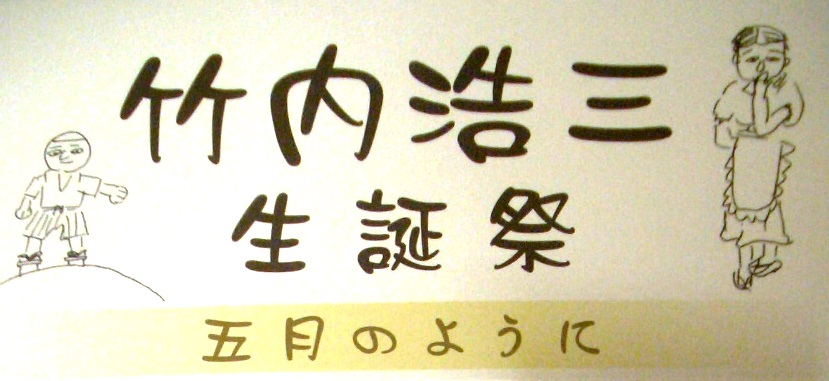 竹内浩三
生誕祭
五月のように